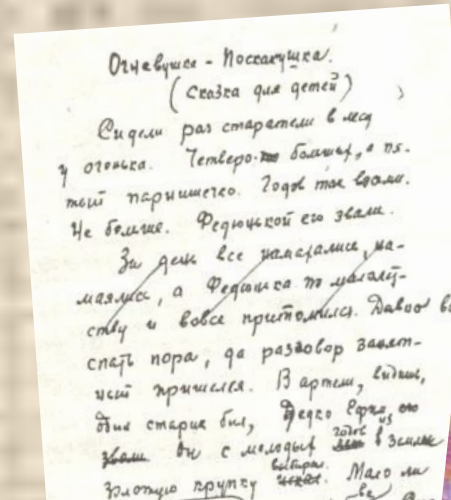 Огневушка - Поскакушка.
(Сказка для детей)
Сидели раз старатели в лесу
у огонька. Четверо больших, а пя-
тый парнишечко. Годов так восьми.
Не больше. Федюнькой его звали.
За день все намаялись, на-
маялись, а Федюнька по малолет-
ству и вовсе притомился. Давно
спать пора, да разговор занят-
ный пришелся. В артели, видишь,
один старик был, Дедко Ефим,
звали Он с молодых годов из земли
золотую крупку выбирал. Мало ли